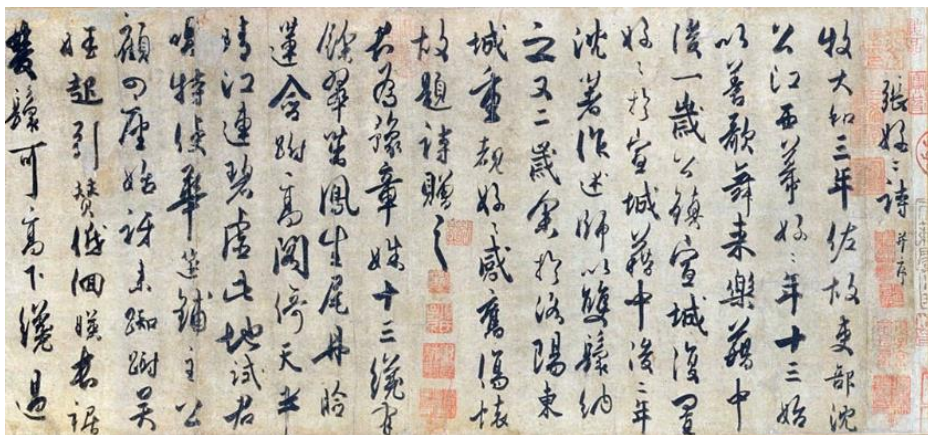 張好〻詩并序
牧大和三年佐故吏部沈
公江西幕好〻年十三始
以善歌舞來樂籍中
後一歲公鎮宣城復置
好〻於宣城籍中後二年
沈著作述師以雙鬟納
之又二歲余於洛陽東
城重覩好〻感舊傷懷
故題詩贈之
君為豫章姝十三纔有
餘翠茁鳳生尾丹臉
蓮含跗高閣倚天半
晴江連碧虛此地試君
唱特使華筵鋪主公
顧四座始訝來踟躕吳
娃起引贊低佪映長裾
雙鬟可高下纔過